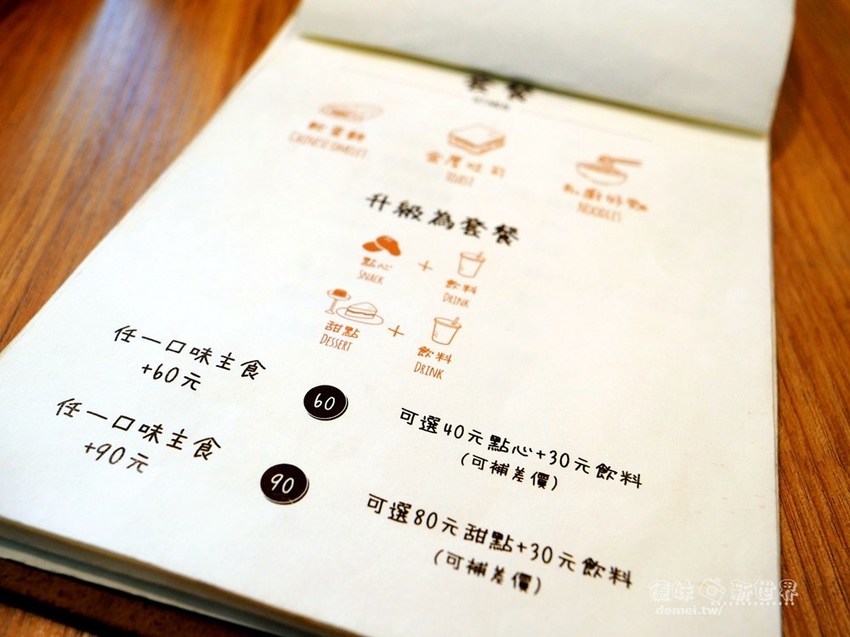 套餐
軟蛋餅
CHINESE OMELET
金厚吐司
TOAST
私廚好麵
NOODLES
升級為套餐
點心
SNACK
+
飲料
DRINK
甜點
DESSERT
+
飲料
DRINK
任一口味主食
+60元
60
可選40元點心+30元飲料
(可補差價)
任一口味主食
+90元
90
可選80元甜點+30元飲料
(可補差價)
新世界
demei.tw/